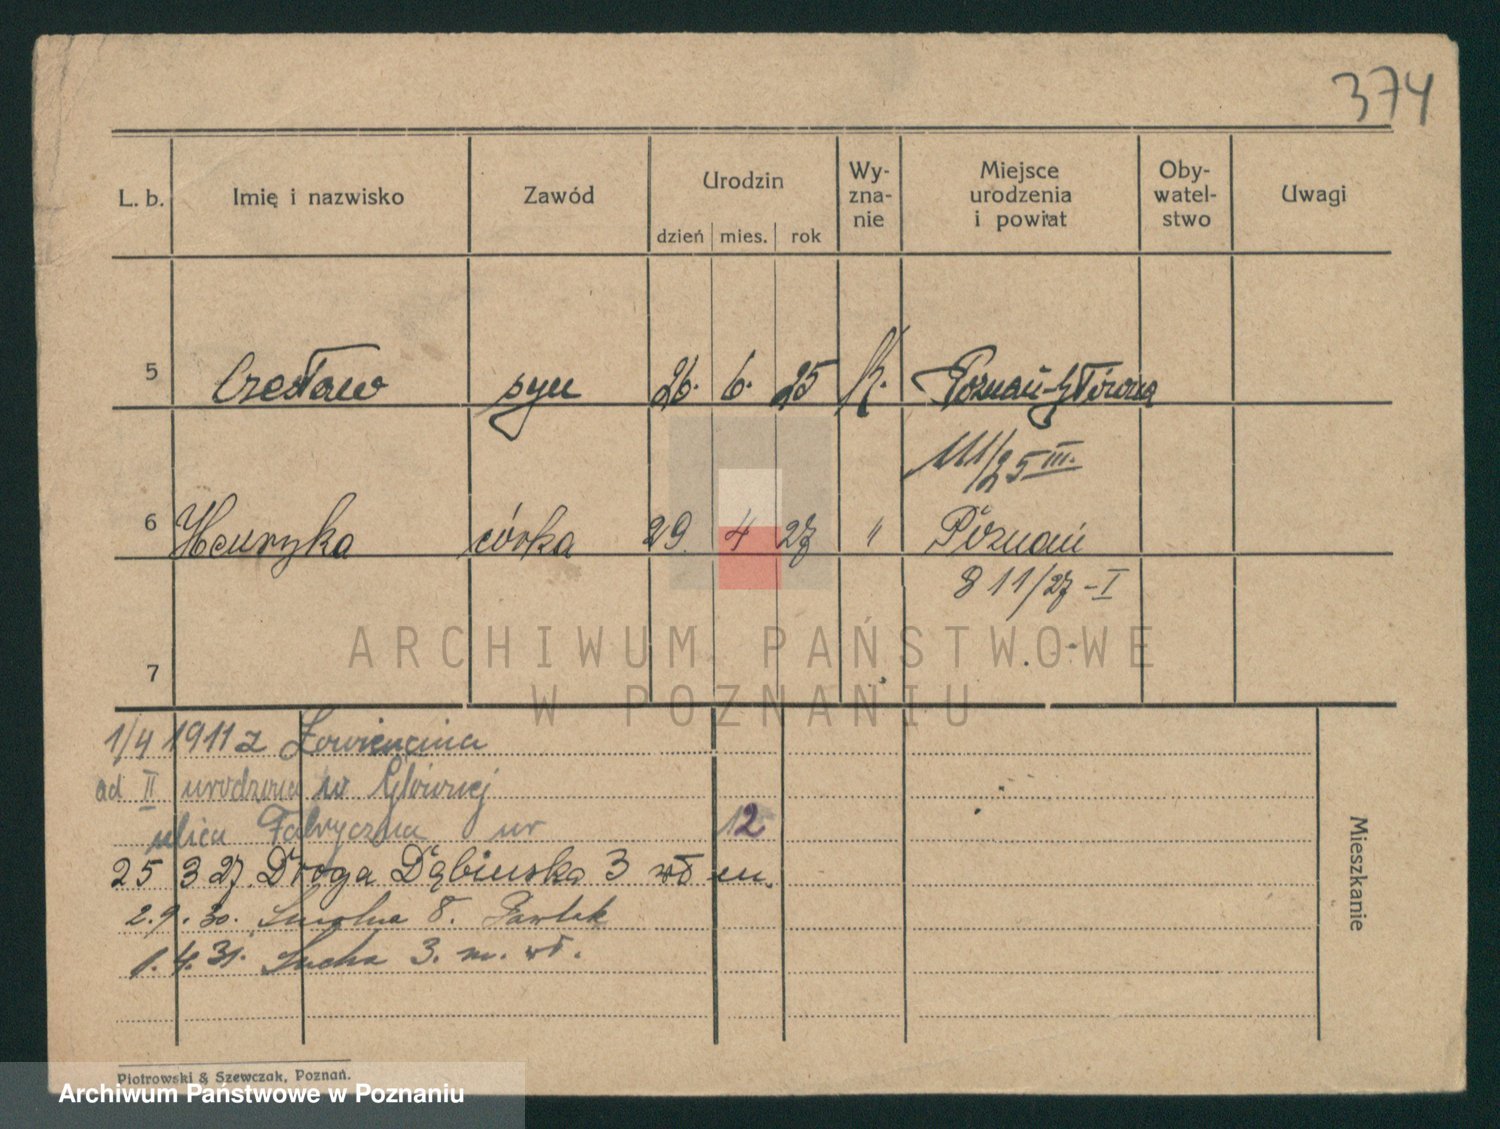 374
L. b. Imię i nazwisko Zawód Urodzin dzień mies. rok Wy-zna-nie Miejsce urodzenia i powiat Oby-watel-stwo Uwagi
5 Czesław syn 26. 6. 25 K. Poznań-Główna
111/25 III.
6 Henryka córka 29 4 27 " Poznań
811/27 - I
7
ARCHIWUM PAŃSTWOWE
W POZNANIU
1/4 1911 z
ad II urodzona w Głównej
ulica Fabryczna nr 12
25 3 27. Droga Dębińska 3 wł m.
2. 9. 30. Smolna 8. Pawlak
1. 4. 31. Sucha 3. m. wł.
Mieszkanie
Piotrowski & Szewczak, Poznań.
Archiwum Państwowe w Poznaniu